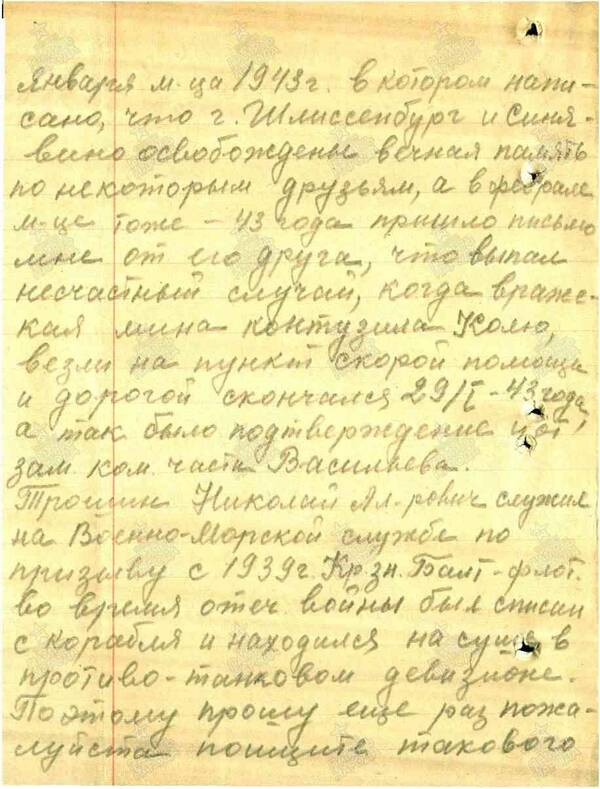 января м-ца 1943г. в котором напи-
сано, что г. Шлиссенбург и Синя-
вино освобождены вечная память
по некоторым друзьям, а в феврале
м-це тоже - 43 года пришло письмо
мне от его друга, что выпал
несчастный случай, когда враже-
ская мина контузила Колю,
везли на пункт скорой помощи
и дорогой скончался 29/I - 43 года,
а так было подтверждение и от
зам ком. части Васильева.
Трошин Николай Ал-рович служил
на Военно-Морской службе по
призыву с 1939г. Кр.зн. Балт-флот.
во время отеч войны был списан
с корабля и находился на суше, в
противо-танковом девизионе.
Поэтому прошу еще раз пожа-
луйста поищите такового